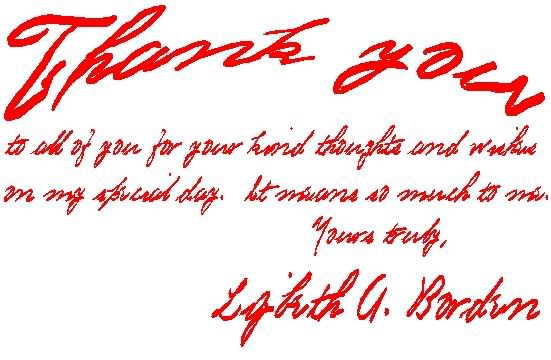 Thank you
to all of you for your kind thoughts and wishes
on my special day. It means so much to me.
Yours truly,
Lizbeth A. Borden